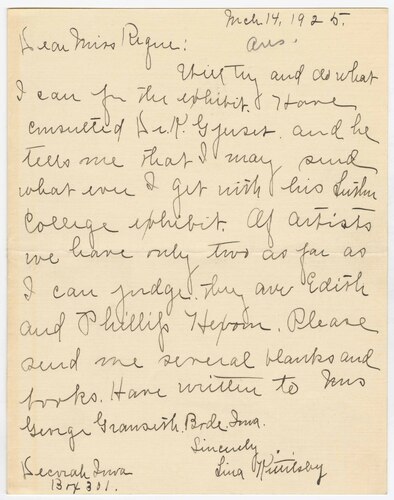 Mch 14, 1925.
Dear Miss Rique:
Ans.
Will try and do what
I can for the exhibit. Have
consulted Dr. K. Gjerset and he
tells me that I may send
what ever I get with his Luther
College exhibit. Of Artists
we have only two as far as
I can judge. they are Edith
and Phillip Hexom. Please
send me several blanks and
books. Have written to Mrs
George Bode, Iowa.
Sincerely,
Decorah Iowa Lina
Box 301.